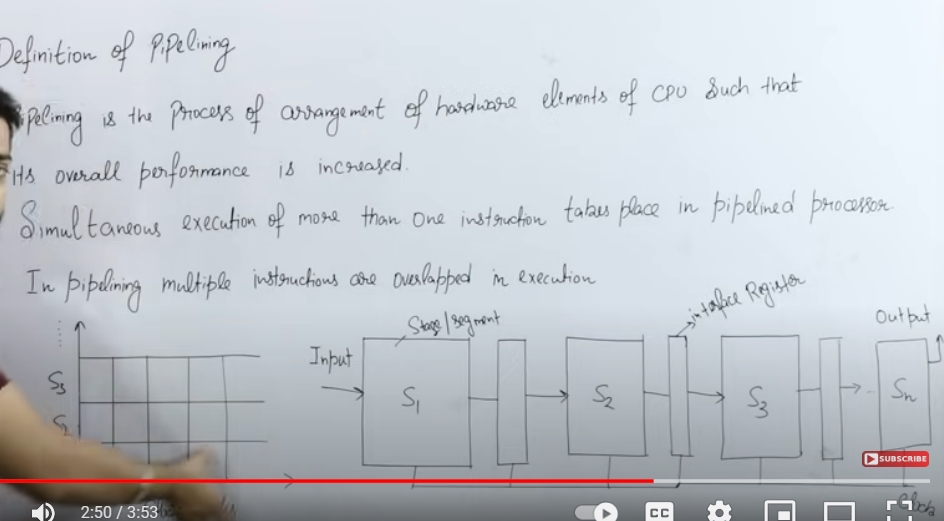 Definition of Pipelining
Pipelining is the Process of arrangement of hardware elements of CPU Such that
its overall performance is increased.
Simultaneous execution of more than one instruction takes place in pipelined processor.
In pipelining multiple instructions are overlapped in execution
Stage/segment
interface Register
Output
Input
S1
S2
S3
Sn
S3
S2
SUBSCRIBE
Clock
2:50 / 3:53
CC